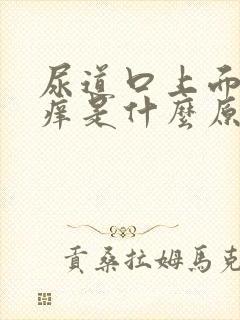 尿道口上而
痒是什麼原
貢桑拉姆馬克